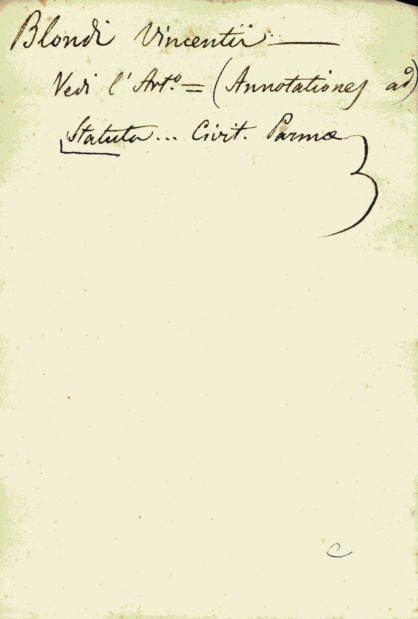 Blondi Vincentii ———
Vedi l' Art.º = (Annotationes ad)
Statuta... Civit. Parmæ
c